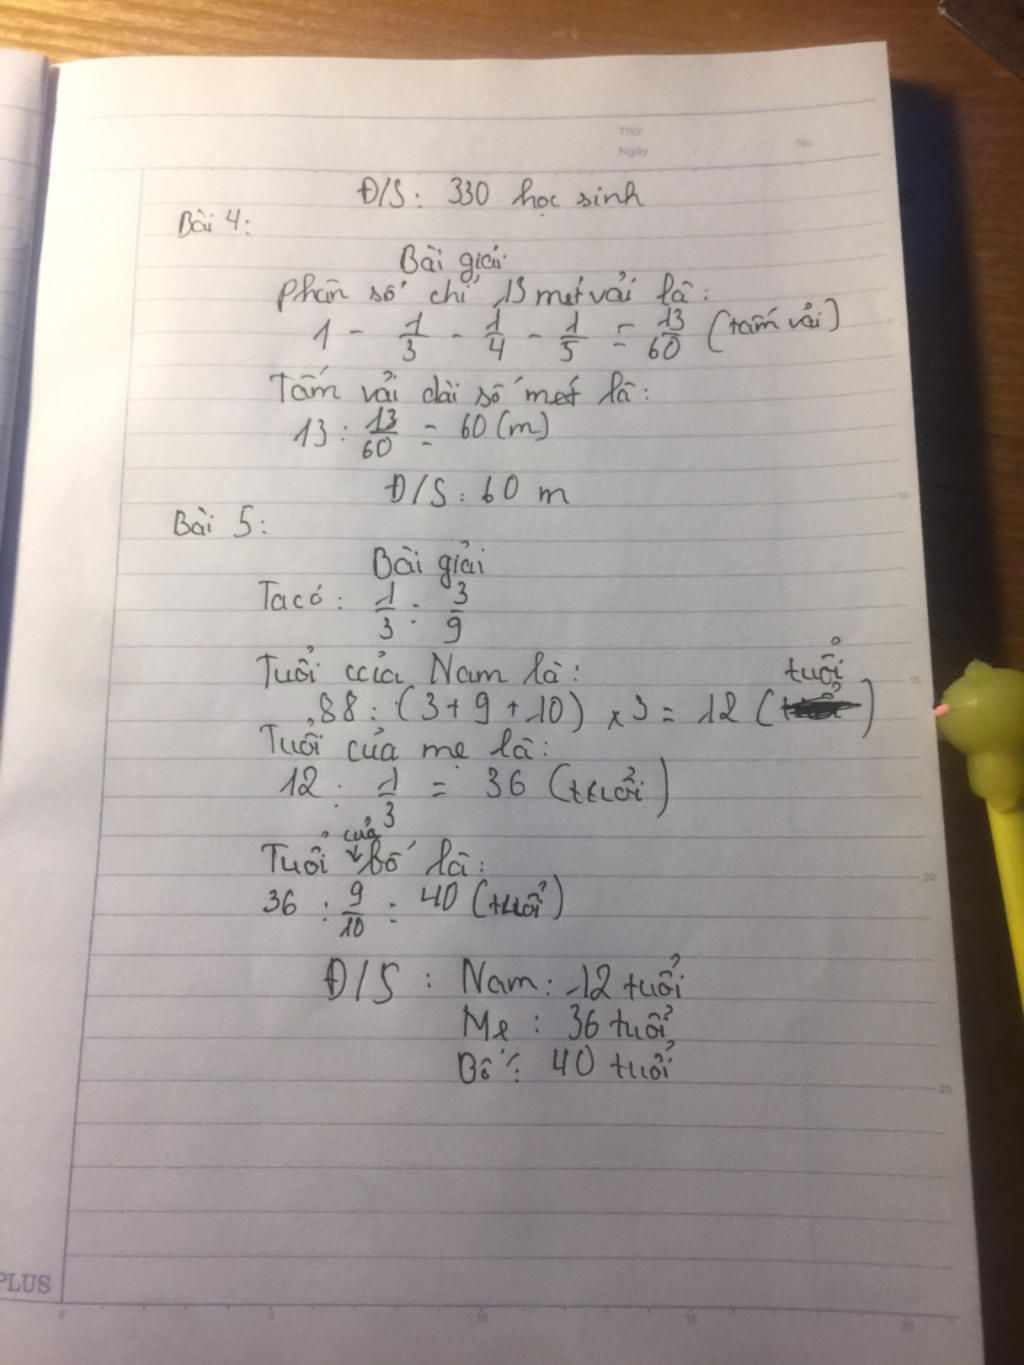 Thứ
Ngày
No
Đ/S: 330 học sinh
Bài 4:
Bài giải
Phân số chỉ 13 mét vải là:
1 - 1/3 - 1/4 - 1/5 = 13/60 (tấm vải)
Tấm vải dài số mét là:
13 : 13/60 = 60 (m)
Đ/S: 60 m
Bài 5:
Bài giải
Ta có: 1/3 = 3/9
Tuổi của Nam là:
tuổi
88 : (3 + 9 + 10) x 3 = 12 ( )
Tuổi của mẹ là:
12 : 1/3 = 36 (tuổi)
của
Tuổi bố là:
36 : 9/10 = 40 (tuổi)
Đ/S : Nam: 12 tuổi
Mẹ : 36 tuổi
Bố : 40 tuổi
PLUS
0 5 10 15 20
10
15
20
25